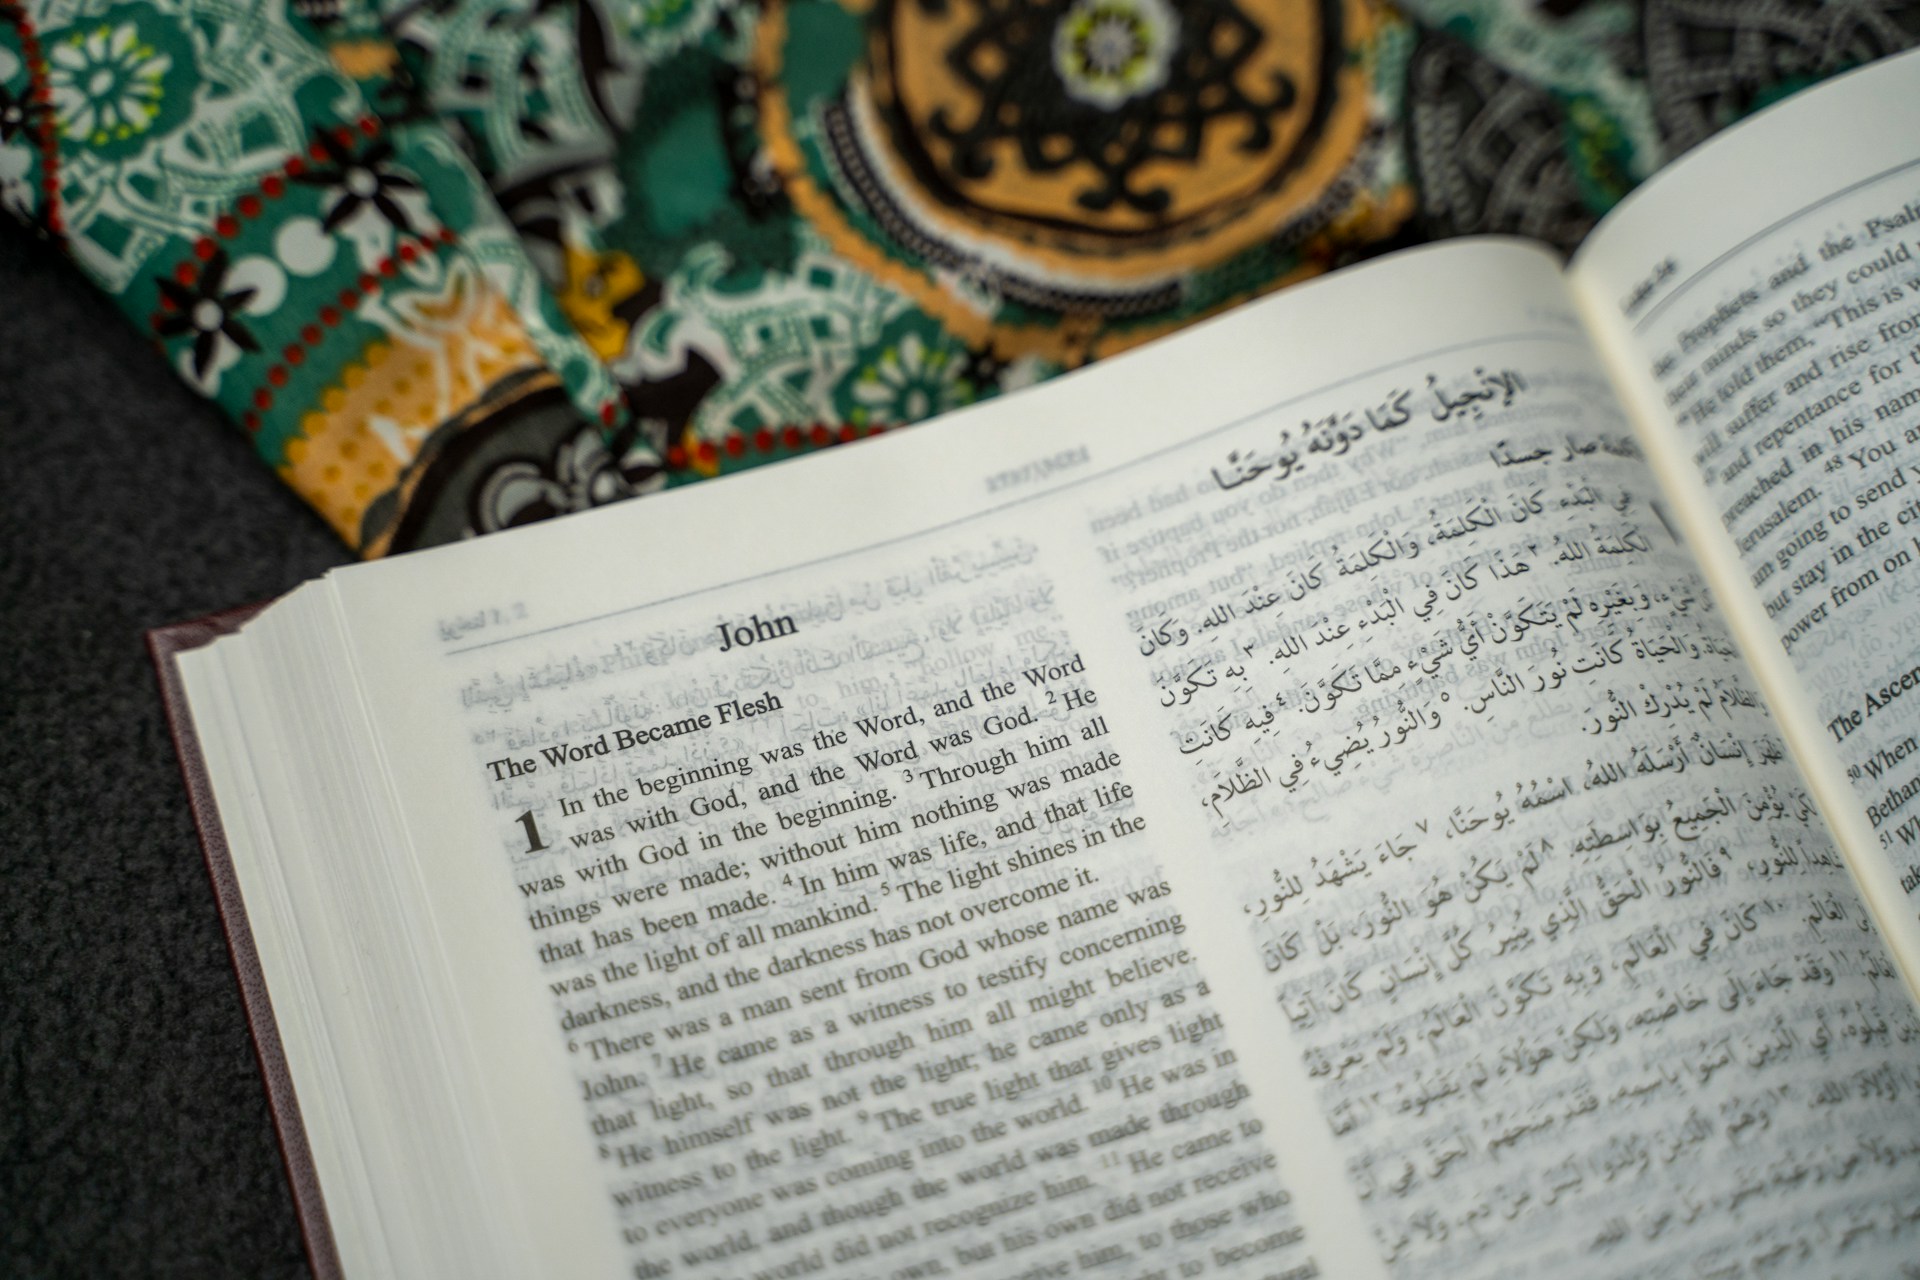 John
The Word Became Flesh
1 In the beginning was the Word, and the Word
was with God, and the Word was God. 2 He
was with God in the beginning. 3 Through him all
things were made; without him nothing was made
that has been made. 4 In him was life, and that life
was the light of all mankind. 5 The light shines in the
darkness, and the darkness has not overcome it.
6 There was a man sent from God whose name was
John. 7 He came as a witness to testify concerning
that light, so that through him all might believe.
8 He himself was not the light; he came only as a
witness to the light. 9 The true light that gives light
to everyone was coming into the world. 10 He was in
the world, and though the world was made through
world did not recognize him. 11 He came to
own, but his own did not receive
him, to those who
to become
الإِنْجِيلُ كَمَا دَوَّنَهُ يُوحَنَّا
صار جسدًا
فِي الْبَدْءِ كَانَ الْكَلِمَةُ، وَالْكَلِمَةُ كَانَ عِنْدَ اللهِ. وَكَانَ
الْكَلِمَةُ اللهَ. ٢ هَذَا كَانَ فِي الْبَدْءِ عِنْدَ اللهِ. ٣ بِهِ تَكَوَّنَ
شَيْءٍ، وَبِغَيْرِهِ لَمْ يَتَكَوَّنْ أَيُّ شَيْءٍ مِمَّا تَكَوَّنَ. ٤ فِيهِ كَانَتِ
وَالْحَيَاةُ كَانَتْ نُورَ النَّاسِ. ٥ وَالنُّورُ يُضِيءُ فِي الظَّلَامِ،
وَالظَّلَامُ لَمْ يُدْرِكْ النُّورَ.
إِنْسَانٌ أَرْسَلَهُ اللهُ، اسْمُهُ يُوحَنَّا، ٧ جَاءَ يَشْهَدُ لِلنُّورِ،
يُؤْمِنَ الْجَمِيعُ بِوَاسِطَتِهِ. ٨ لَمْ يَكُنْ هُوَ النُّورَ، بَلْ كَانَ
لِلنُّورِ، ٩ فَالنُّورُ الْحَقُّ الَّذِي يُنِيرُ كُلَّ إِنْسَانٍ كَانَ آتِيًا
الْعَالَمِ. ١٠ كَانَ فِي الْعَالَمِ، وَبِهِ تَكَوَّنَ الْعَالَمُ، وَلَمْ يَعْرِفْهُ
الْعَالَمُ. ١١ وَقَدْ جَاءَ إِلَى خَاصَّتِهِ، وَلَكِنَّ هَؤُلَاءِ لَمْ يَقْبَلُوهُ. ١٢ أَمَّا
قَبِلُوهُ، أَيِ الَّذِينَ آمَنُوا بِاسْمِهِ، فَقَدْ مَنَحَهُمُ الْحَقَّ فِي أَنْ
أَوْلَادَ اللهِ، ١٣ وَهُمُ الَّذِينَ وُلِدُوا لَيْسَ مِنْ دَمٍ، وَلَا مِنْ
بَلْ مِنَ اللهِ.
Prophets and the Psal
their minds so they could
He told them, "This is w
will suffer and rise from
and repentance for
preached in his nam
Jerusalem. 48 You ar
am going to send y
but stay in the cit
power from on
The Ascen
50 When
Bethan
51 Wh
tak